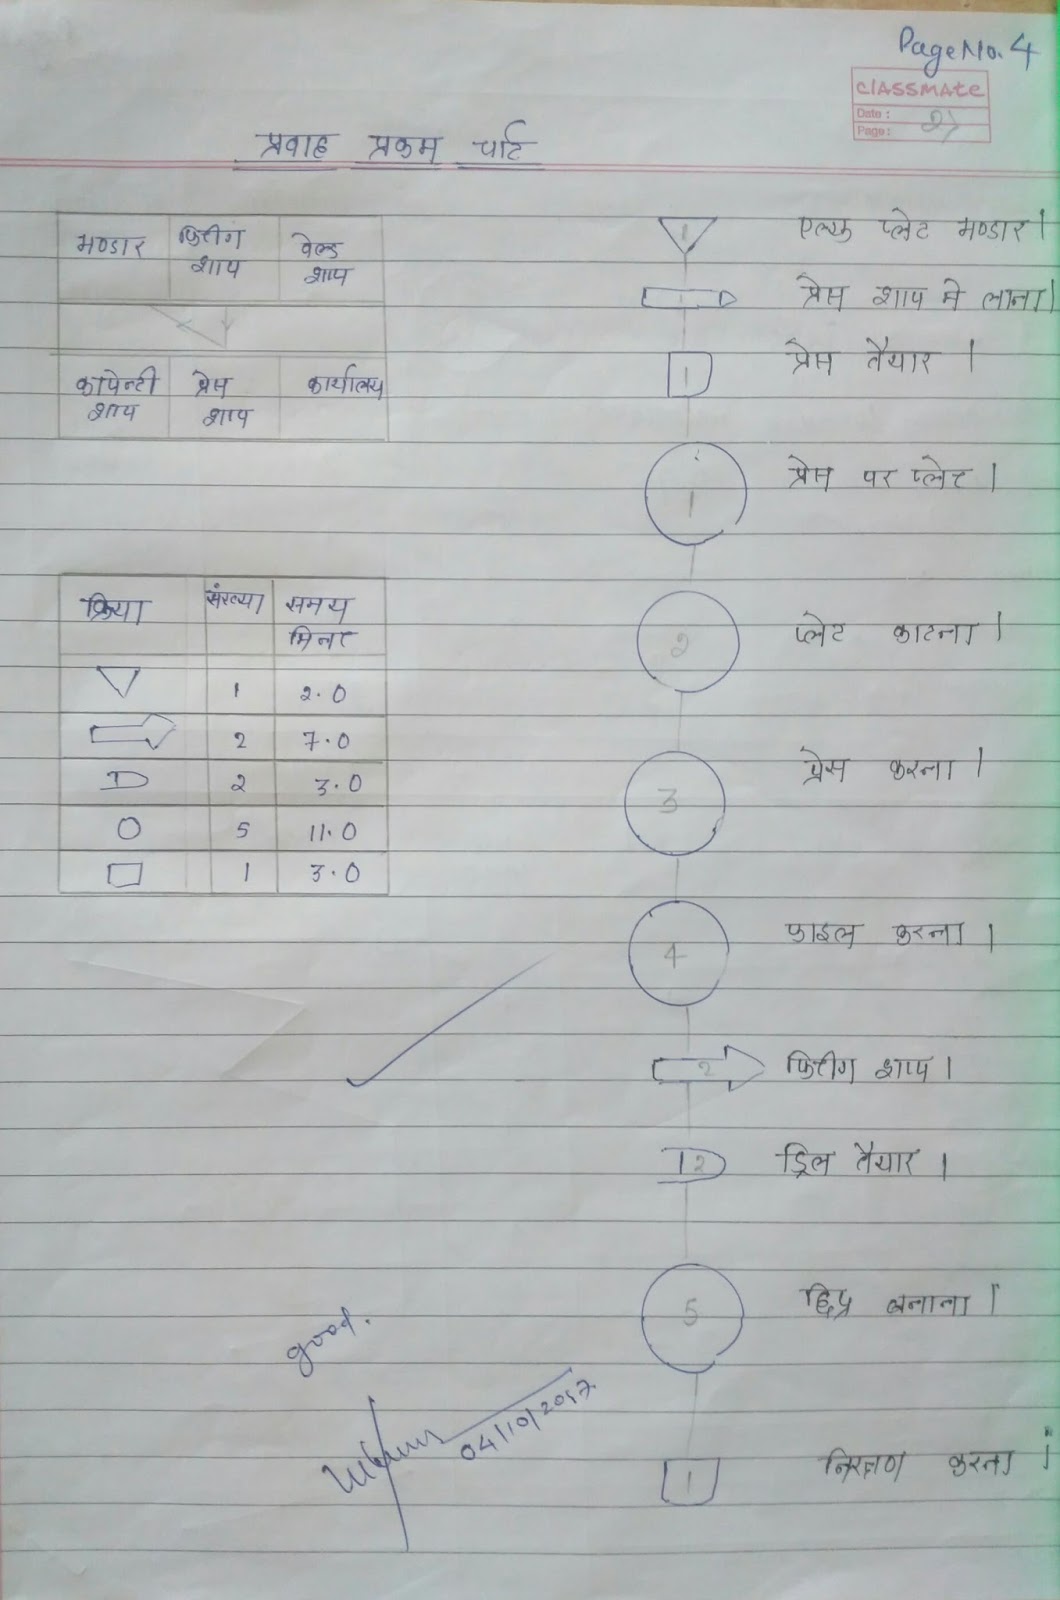 Page No. 4
classmate
Date :
Page :
प्रवाह प्रक्रम चार्ट
भण्डार फिटींग शाप वेल्ड शाप
कापेन्टी शाप प्रेस शाप कार्यालय
क्रिया संख्या समय मिनट
1 2.0
2 7.0
2 3.0
5 11.0
1 3.0
1 एल्यू प्लेट भण्डार।
1 प्रेस शाप मे लाना।
1 प्रेस तैयार।
1 प्रेस पर प्लेट।
2 प्लेट काटना।
3 प्रेस करना।
4 फाइल करना।
2 फिटींग शाप।
2 ड्रिल तैयार।
5 छिद्र बनाना।
1 निरक्षण करना।
good.
04/10/2017